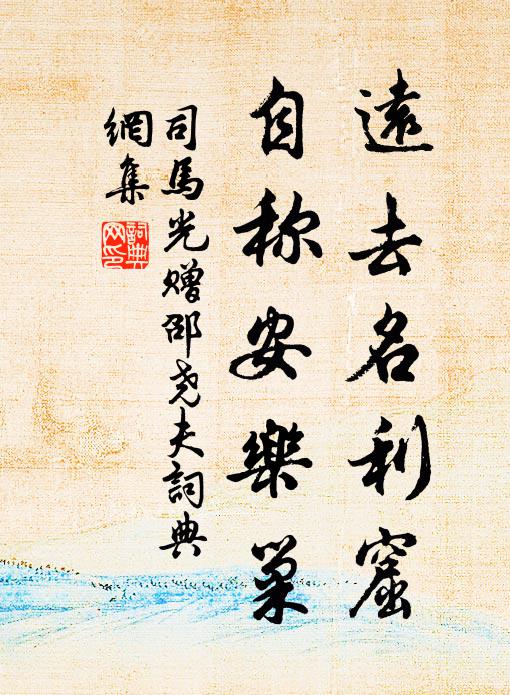 遠去名利窟
自称安樂巢
司馬光赠邵尧夫詞典
網集
詞典
网印